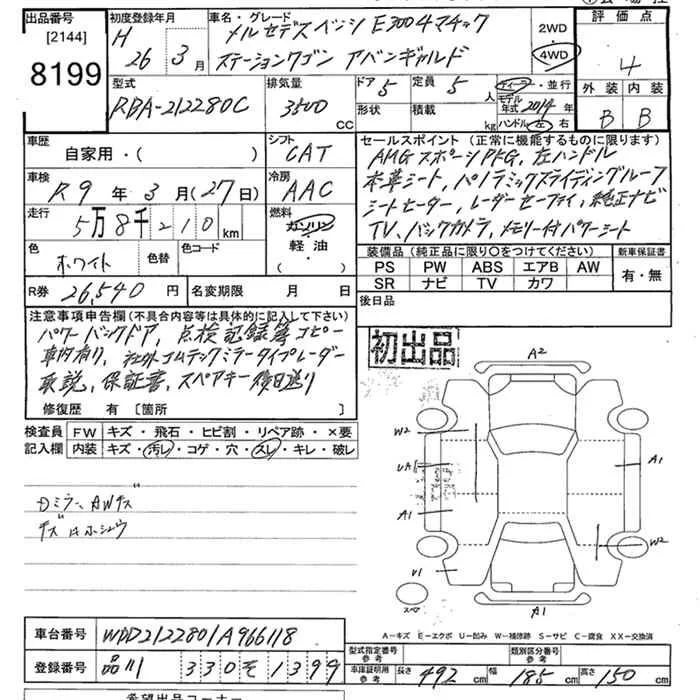 出品番号
[2144]
8199
初度登録年月
H
26 3月
車名・グレード
メルセデスベンツ E300 4マチック
ステーションワゴン アバンギャルド
2WD
4WD
評価点
4
外装 内装
B B
型式
RBA-212280C
排気量
3500
CC
ドア 5
形状
定員 5人
積載 kg
ディーラー・並行
モデル年式 2014年
ハンドル 左 右
車歴
自家用・( )
シフト
CAT
車検
R9年3月(27日)
冷房
AAC
走行
5万8千210km
燃料
ガソリン
軽油
( )
色
ホワイト
色替
色コード
R券 26,540円
名変期限 月 日
セールスポイント(正常に機能するものに限ります)
AMGスポーツPKG, 左ハンドル
本革シート, パノラミックスライディングルーフ
シートヒーター, レーダーセーフティ, 純正ナビ
TV, バックカメラ, メモリー付パワーシート
装備品(純正品に限り〇をつけてください)
新車保証書
PS PW ABS エアB AW
SR ナビ TV カワ
有・無
後日品
注意事項申告欄(不具合内容等は具体的に記入して下さい)
パワーバックドア, 点検記録簿コピー
車内有り, 社外コムテックミラータイプレーダー
取説, 保証書, スペアキー後日送り
修復歴 有 [箇所 ]
初出品
検査員記入欄
FW キズ・飛石・ヒビ割・リペア跡・×要
内装 キズ・汚レ・コゲ・穴・スレ・キレ・破レ
Dミラー、AWキズ
キズ凹ホシュウ
A2
W2
UA1
A1
U1
スペア
A1
A1
W2
A－キズ E－エクボ U－凹み W－補修跡 S－サビ C－腐食 XX－交換済
車台番号 WDD2122801A966118
登録番号 品川 330 そ 1399
型式指定番号 参考
類別区分番号 参考
車庫証明用 参考
長さ 492cm 幅 185cm 高さ 150cm
希望出品コーナー